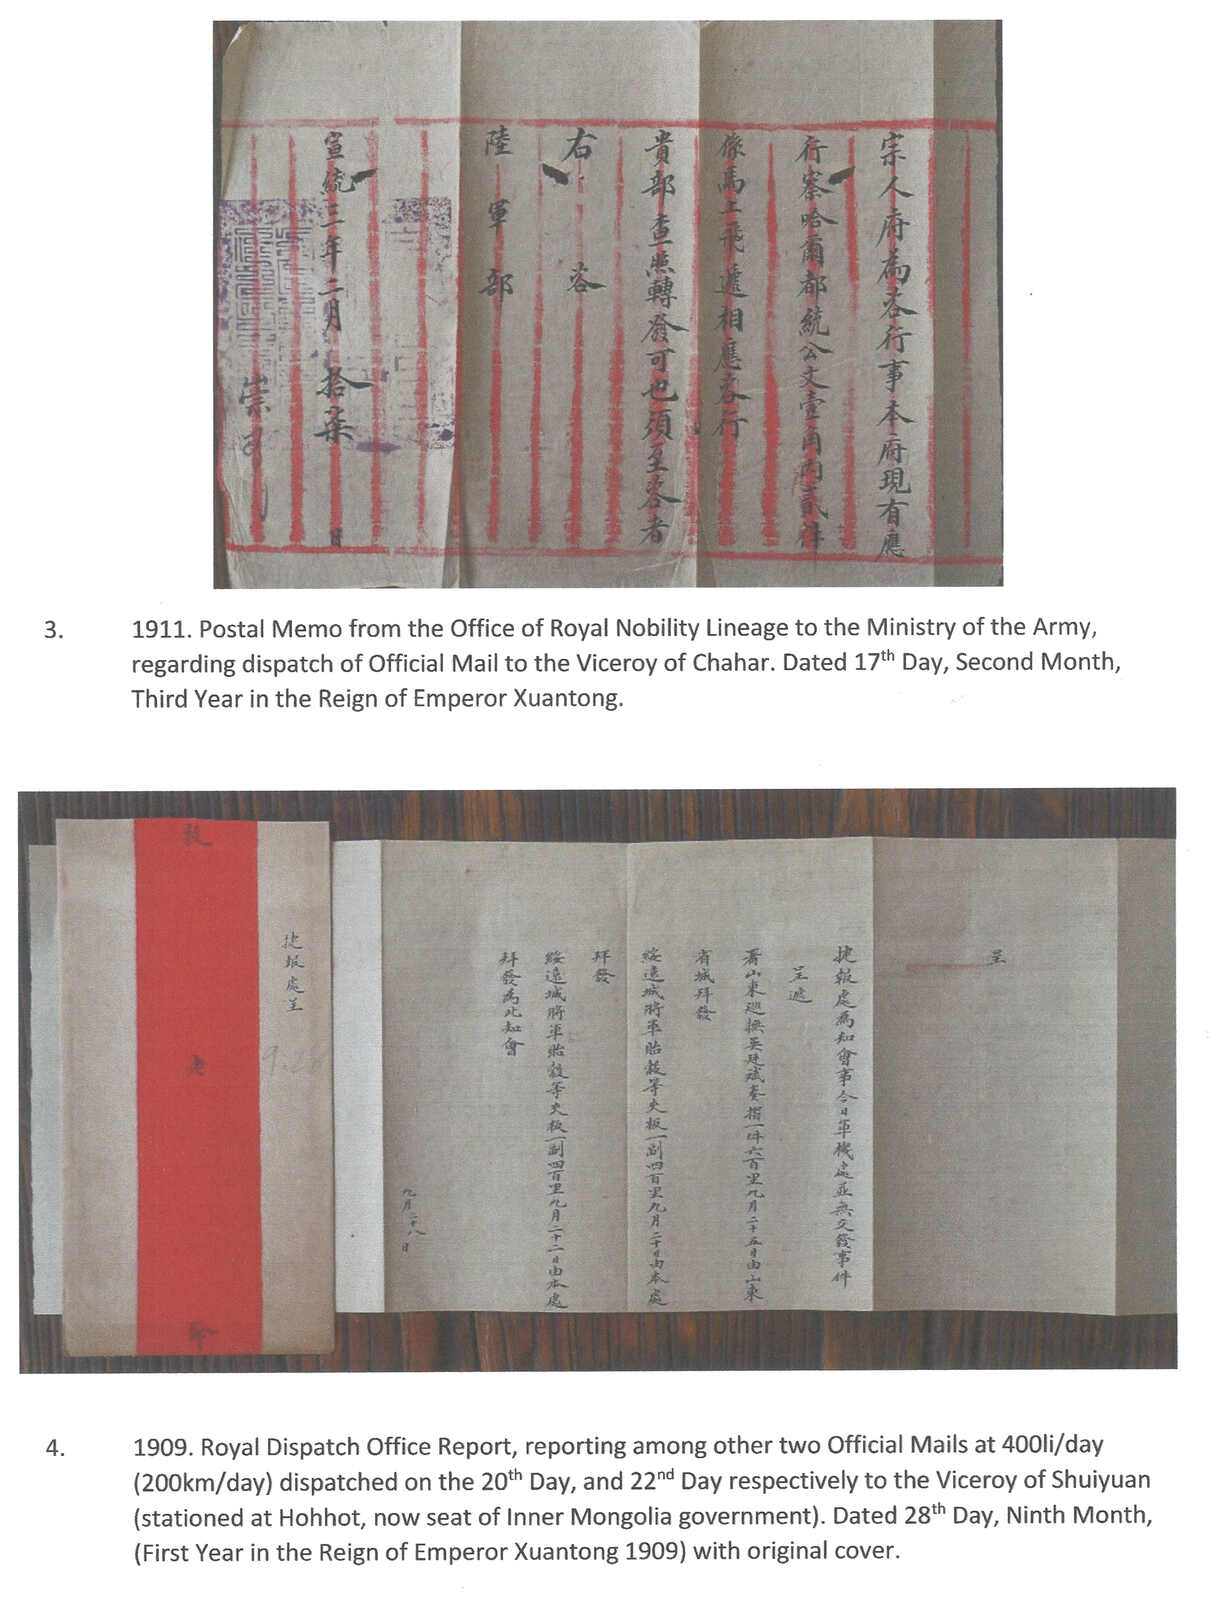 宗人府為咨行事本府現有應
行察哈爾都統公文壹角內貳件
係馬上飛遞相應咨行
貴部查照轉發可也須至咨者
右咨
陸軍部
宣統三年二月拾柒日
崇
3. 1911. Postal Memo from the Office of Royal Nobility Lineage to the Ministry of the Army,
regarding dispatch of Official Mail to the Viceroy of Chahar. Dated 17th Day, Second Month,
Third Year in the Reign of Emperor Xuantong.
呈
捷報處為知會事今日軍機處並無交發事件
呈遞
署山東巡撫吳廷斌奏摺一件六百里九月二十五日由山東
省城拜發
綏遠城將軍貽穀等夾板一副四百里九月二十日由本處
拜發
綏遠城將軍貽穀等夾板一副四百里九月二十二日由本處
拜發為此知會
九月二十八日
捷報處呈
4. 1909. Royal Dispatch Office Report, reporting among other two Official Mails at 400li/day
(200km/day) dispatched on the 20th Day, and 22nd Day respectively to the Viceroy of Shuiyuan
(stationed at Hohhot, now seat of Inner Mongolia government). Dated 28th Day, Ninth Month,
(First Year in the Reign of Emperor Xuantong 1909) with original cover.